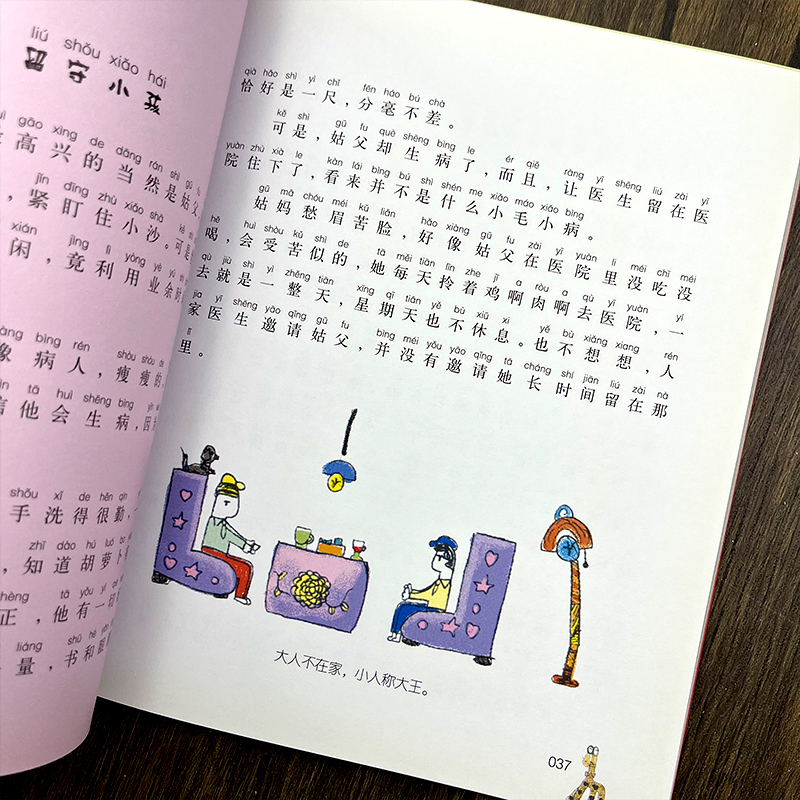 liú shǒu xiǎo hái
留守小孩
gāo xìng de dāng rán shì gū fu
高兴的当然是姑父
jǐn dīng zhù xiǎo shā kě
，紧盯住小沙。可是
xián jìng lì yòng yè yú shí
闲，竟利用业余时
bìng rén shòu shòu de
像病人，瘦瘦的，
tā huì shēng bìng yīn
信他会生病，因
shǒu xǐ de hěn qín
手洗得很勤，
zhī dào hú luó bo
，知道胡萝卜
tā yǒu yí
正，他有一切
liáng shū hé
量，书和
qià hǎo shì yì chǐ fēn háo bú chà
恰好是一尺，分毫不差。
kě shì gū fu què shēng bìng le ér qiě ràng yī shēng liú zài yī
可是，姑父却生病了，而且，让医生留在医
yuàn zhù xià le kàn lái bìng bú shì shén me xiǎo máo xiǎo bìng
院住下了，看来并不是什么小毛小病。
gū mā chóu méi kǔ liǎn hǎo xiàng gū fu zài yī yuàn li méi chī méi
姑妈愁眉苦脸，好像姑父在医院里没吃没
hē huì shòu kǔ shì de tā měi tiān līn zhe jī a ròu a qù yī yuàn yí
喝，会受苦似的，她每天拎着鸡啊肉啊去医院，一
qù jiù shì yì zhěng tiān xīng qī tiān yě bù xiū xi yě bù xiǎng xiang rén
去就是一整天，星期天也不休息。也不想想，人
jia yī shēng yāo qǐng gū fu bìng méi yǒu yāo qǐng tā cháng shí jiān liú zài nà
家医生邀请姑父，并没有邀请她长时间留在那
lǐ
里。
大人不在家，小人称大王。
037